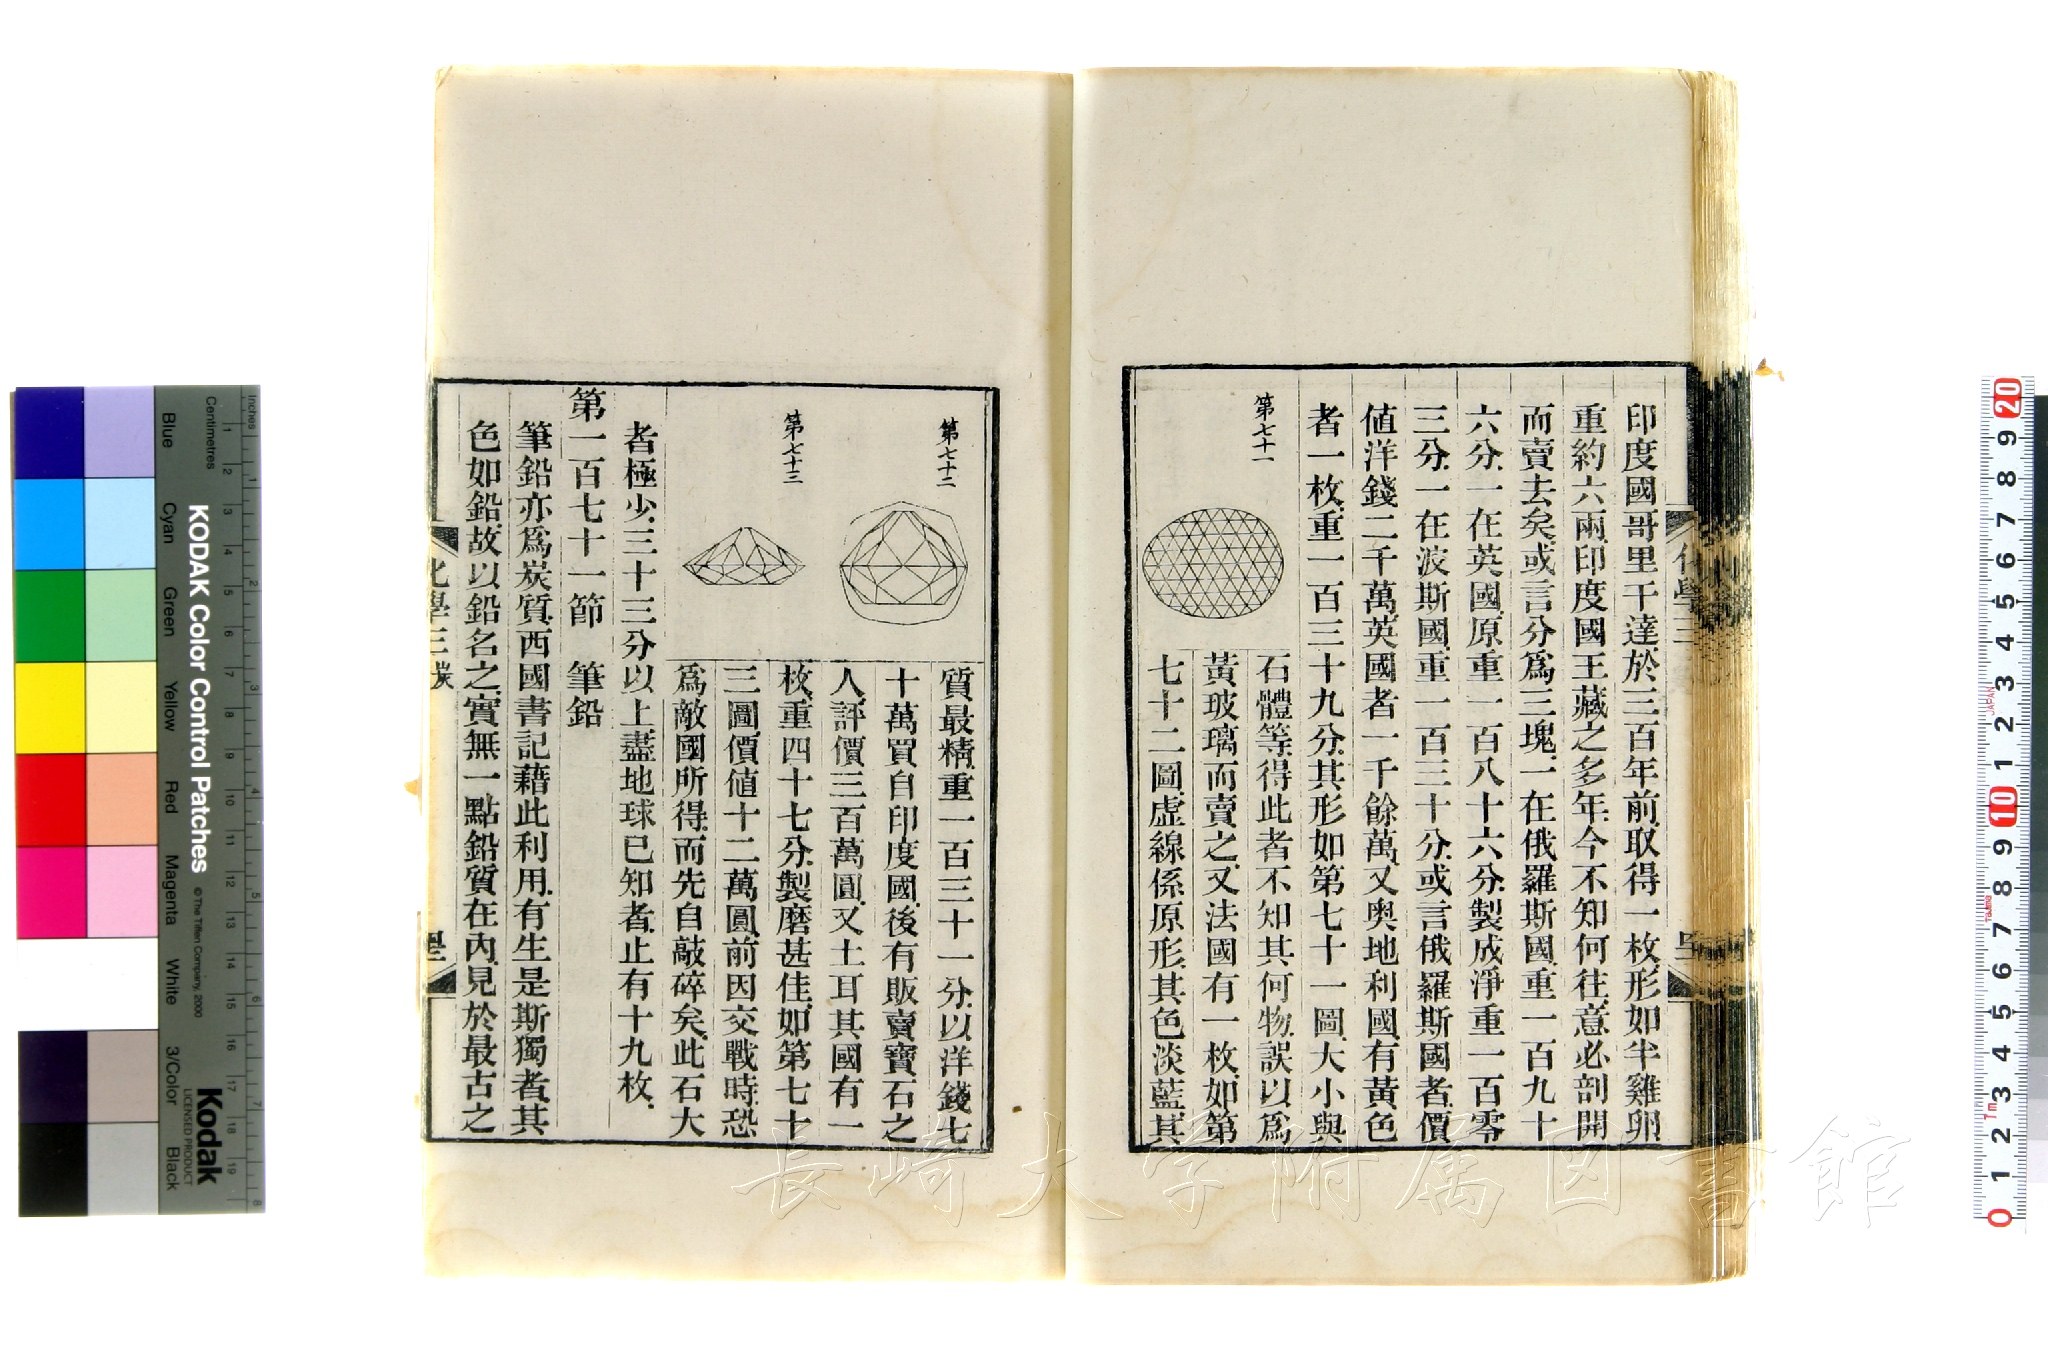 印度國哥里干達、於三百年前、取得一枚、形如半雞卵
重約六兩、印度國王藏之多年、今不知何往、意必剖開
而賣去矣、或言分爲三塊、一在俄羅斯國、重一百九十
六分、一在英國、原重一百八十六分、製成淨重一百零
三分、一在波斯國、重一百三十分、或言俄羅斯國者、價
値洋錢二千萬、英國者一千餘萬、又奥地利國、有黃色
者一枚、重一百三十九分、其形如第七十一圖、大小與
第七十一
石體等、得此者不知其何物、誤以爲
黃玻璃而賣之、又法國有一枚、如第
七十二圖、虛線係原形、其色淡藍、其
質最精、重一百三十一分、以洋錢七
十萬買自印度國、後有販賣寶石之
人、評價三百萬圓、又土耳其國有一
枚、重四十七分、製磨甚佳、如第七十
三圖、價値十二萬圓、前因交戰時、恐
爲敵國所得、而先自敲碎矣、此石大
第七十二
第七十三
者極少、三十三分以上、盡地球已知者、止有十九枚、
第一百七十一節 筆鉛
筆鉛亦爲炭質、西國書記藉此利用、有生是斯獨者、其
色如鉛、故以鉛名之、實無一點鉛質在內、見於最古之
化學三 炭
化學三
長崎大学附属図書館
Inches
Centimetres
KODAK Color Control Patches
© The Tiffen Company, 2000
Kodak
LICENSED PRODUCT
Blue
Cyan
Green
Yellow
Red
Magenta
White
3/Color
Black
1 2 3 4 5 6 7 8 9 10 11 12 13 14 15 16 17 18 19
1 2 3 4 5 6 7 8
0 1 2 3 4 5 6 7 8 9 10 1 2 3 4 5 6 7 8 9 20
JAPAN